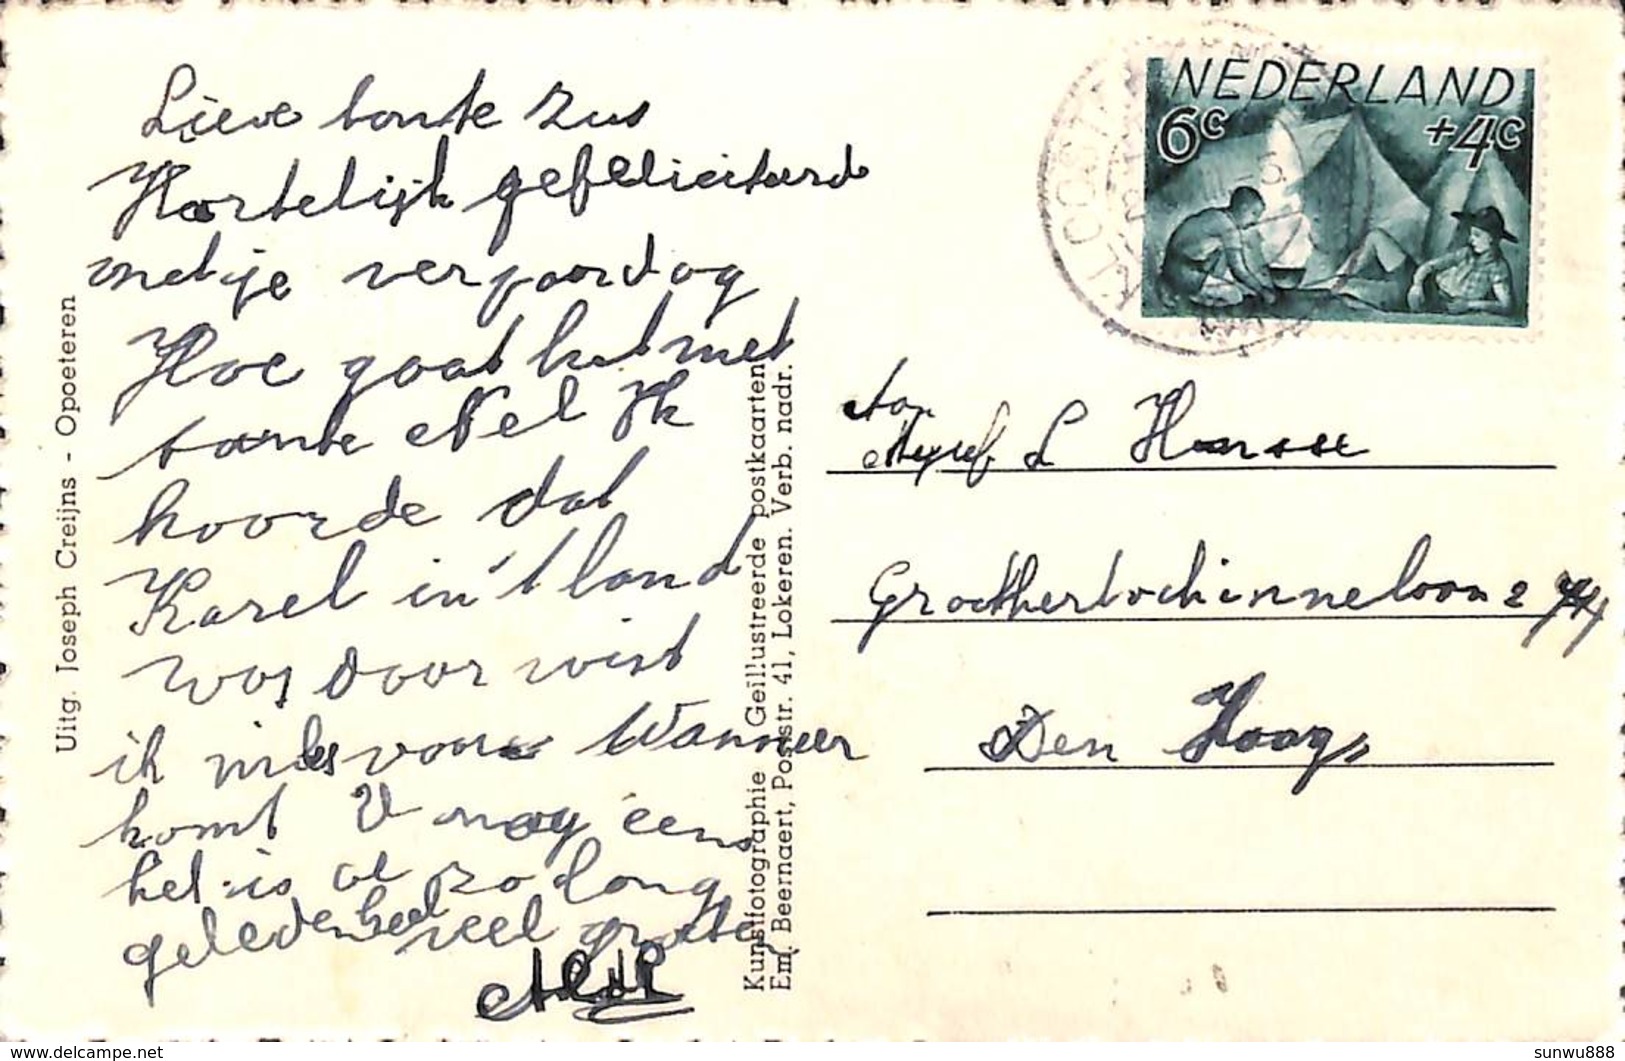 Lieve tante Zus
Hartelijk gefeliciteerd
met je verjaardag
Hoe gaat het met
tante Nel Ik
hoorde dat
Karel in 't land
was daar wist
ik niets van Wanneer
komt U nog eens
het is al zo lang
geleden heel veel groeten
Uitg. Joseph Creijns - Opoeteren
Kunstfotographie Geïllustreerde postkaarten
Em. Beernaert, Poststr. 41, Lokeren. Verb. nadr.
NEDERLAND
6c +4c
KLOOSTER
Aan
Mejuf L
Groothertoginnelaan 2
Den Haag
delcampe.net
sunwu888